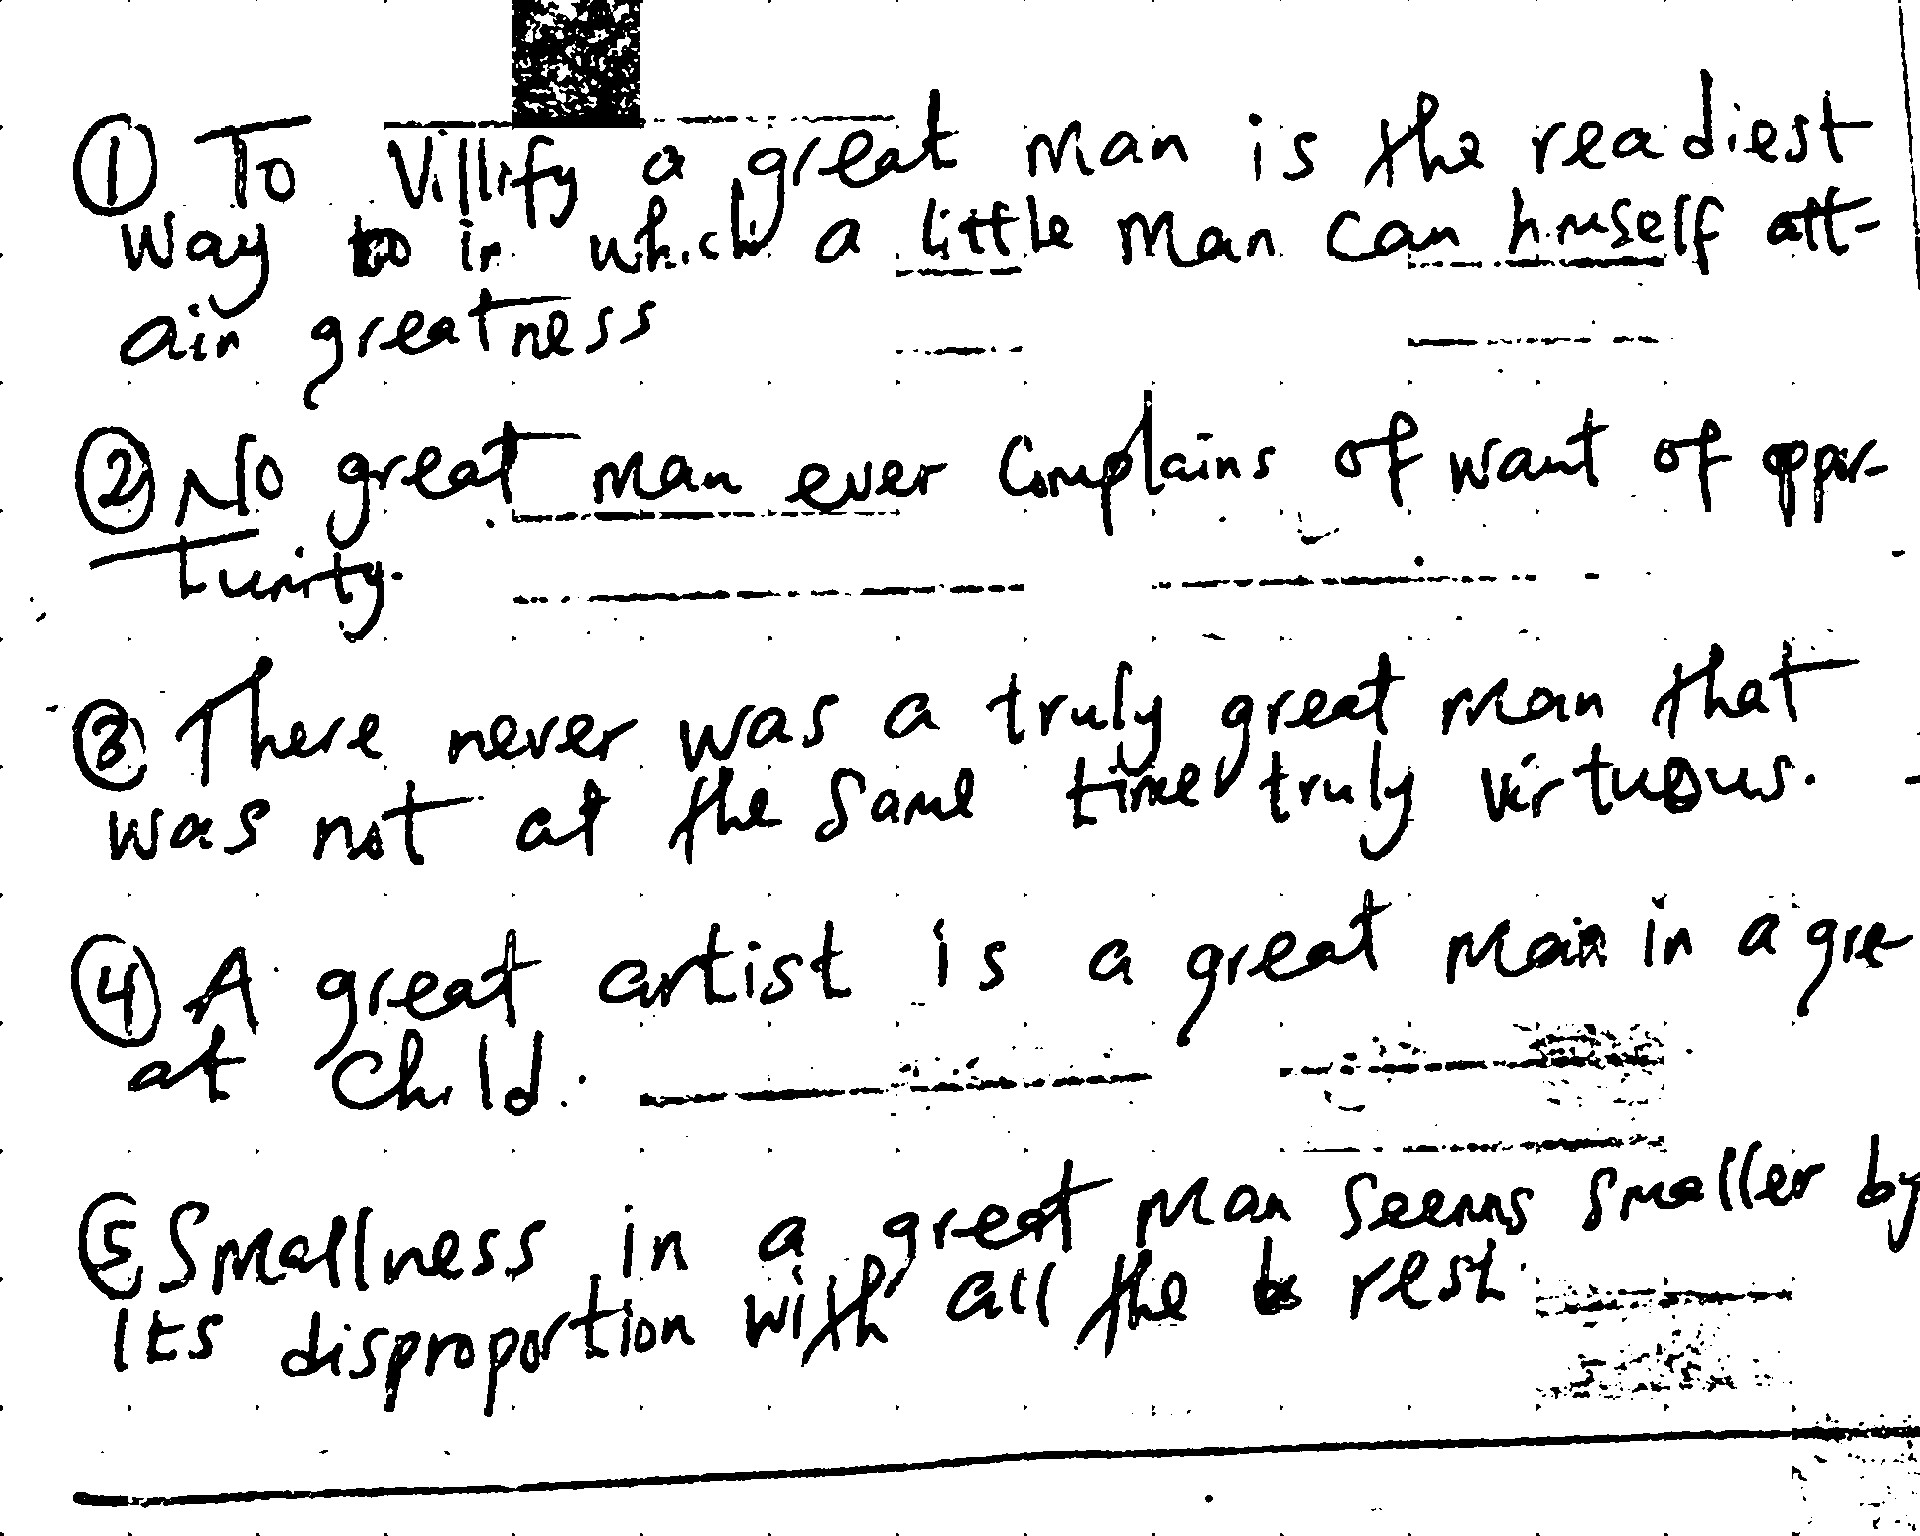 ① To Villify a great man is the readiest
way to in which a little man can himself att-
ain greatness
② No great man ever complains of want of oppor-
tunity.
③ There never was a truly great man that
was not at the same time truly virtuous.
④ A great artist is a great man in a gre-
at child.
⑤ Smallness in a great man seems smaller by
its disproportion with all the rest.